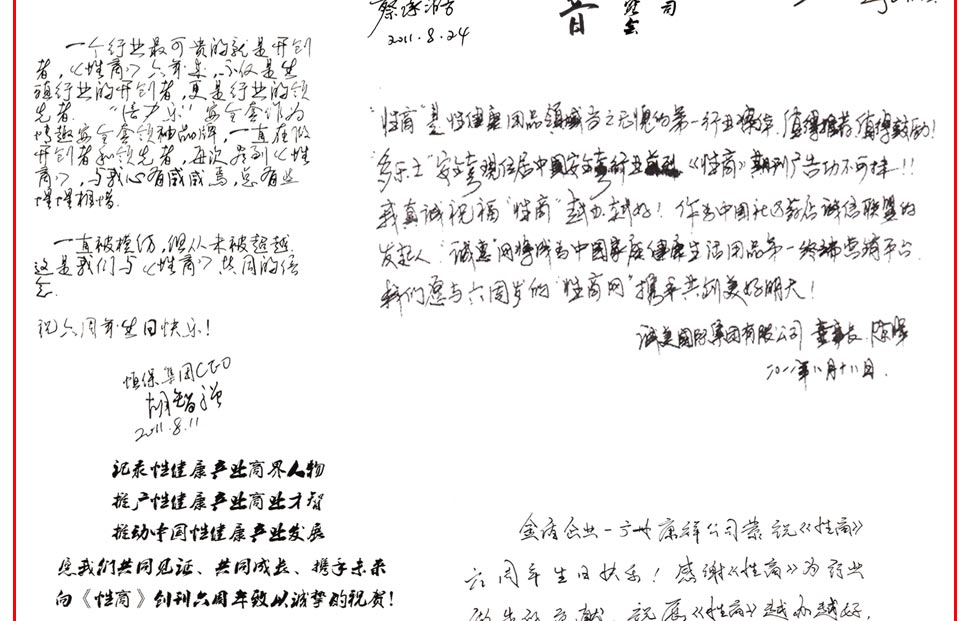 蔡
2011.8.24
音
司
一个行业最可贵的就是开创
者，《性商》六年来，不仅是生
殖行业的开创者，更是行业的领
先者。“倍力乐”安全套作为
情趣安全套领袖品牌，一直在做
开创者和领先者，每次看到《性
商》，与我心有戚戚焉，总有些
惺惺相惜。
一直被模仿，但从未被超越。
这是我们与《性商》共同的信
念。
祝六周年生日快乐！
恒保集团CEO
胡智强
2011.8.11
记录性健康产业商界人物
推广性健康产业商业才智
推动中国性健康产业发展
愿我们共同见证、共同成长、携手未来
向《性商》创刊六周年致以诚挚的祝贺！
“性商”是性健康用品领域当之无愧的第一行业媒体，值得推荐，值得鼓励！
多乐士”安全套现位居中国安全套行业 《性商》期刊广告功不可抹！！
我真诚祝福“性商”越办越好！作为中国社区药店诚信联盟的
发起人“诚惠”网将成为中国家庭健康生活用品第一终端营销平台．
我们愿与六周岁的“性商网”携手共创美好明天！
诚美国际集团有限公司 董事长 陈
二〇一一年八月十八日．
企业－广州康祥公司恭祝《性商》
六周年生日快乐！感谢《性商》为药业
做出的贡献，祝愿《性商》越办越好，